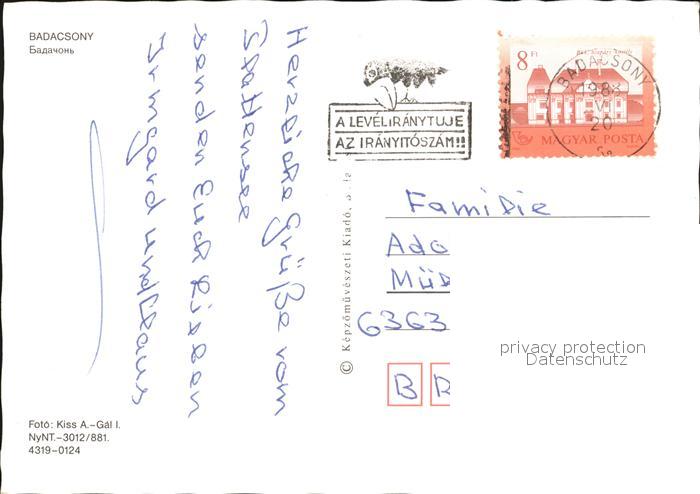 BADACSONY
Бадачонь
Herzliche Grüße vom
Plattensee
senden Euch Lieben
Irmgard und Klaus
Fotó: Kiss A.–Gál I.
NyNT.–3012/881.
4319–0124
© Képzőművészeti Kiadó,
A LEVÉL IRÁNYTŰJE
AZ IRÁNYÍTÓSZÁM!!
8 Ft
MAGYAR POSTA
BADACSONY
1988
VI
20
Familie
Ado
Mü
6363
B
privacy protection
Datenschutz